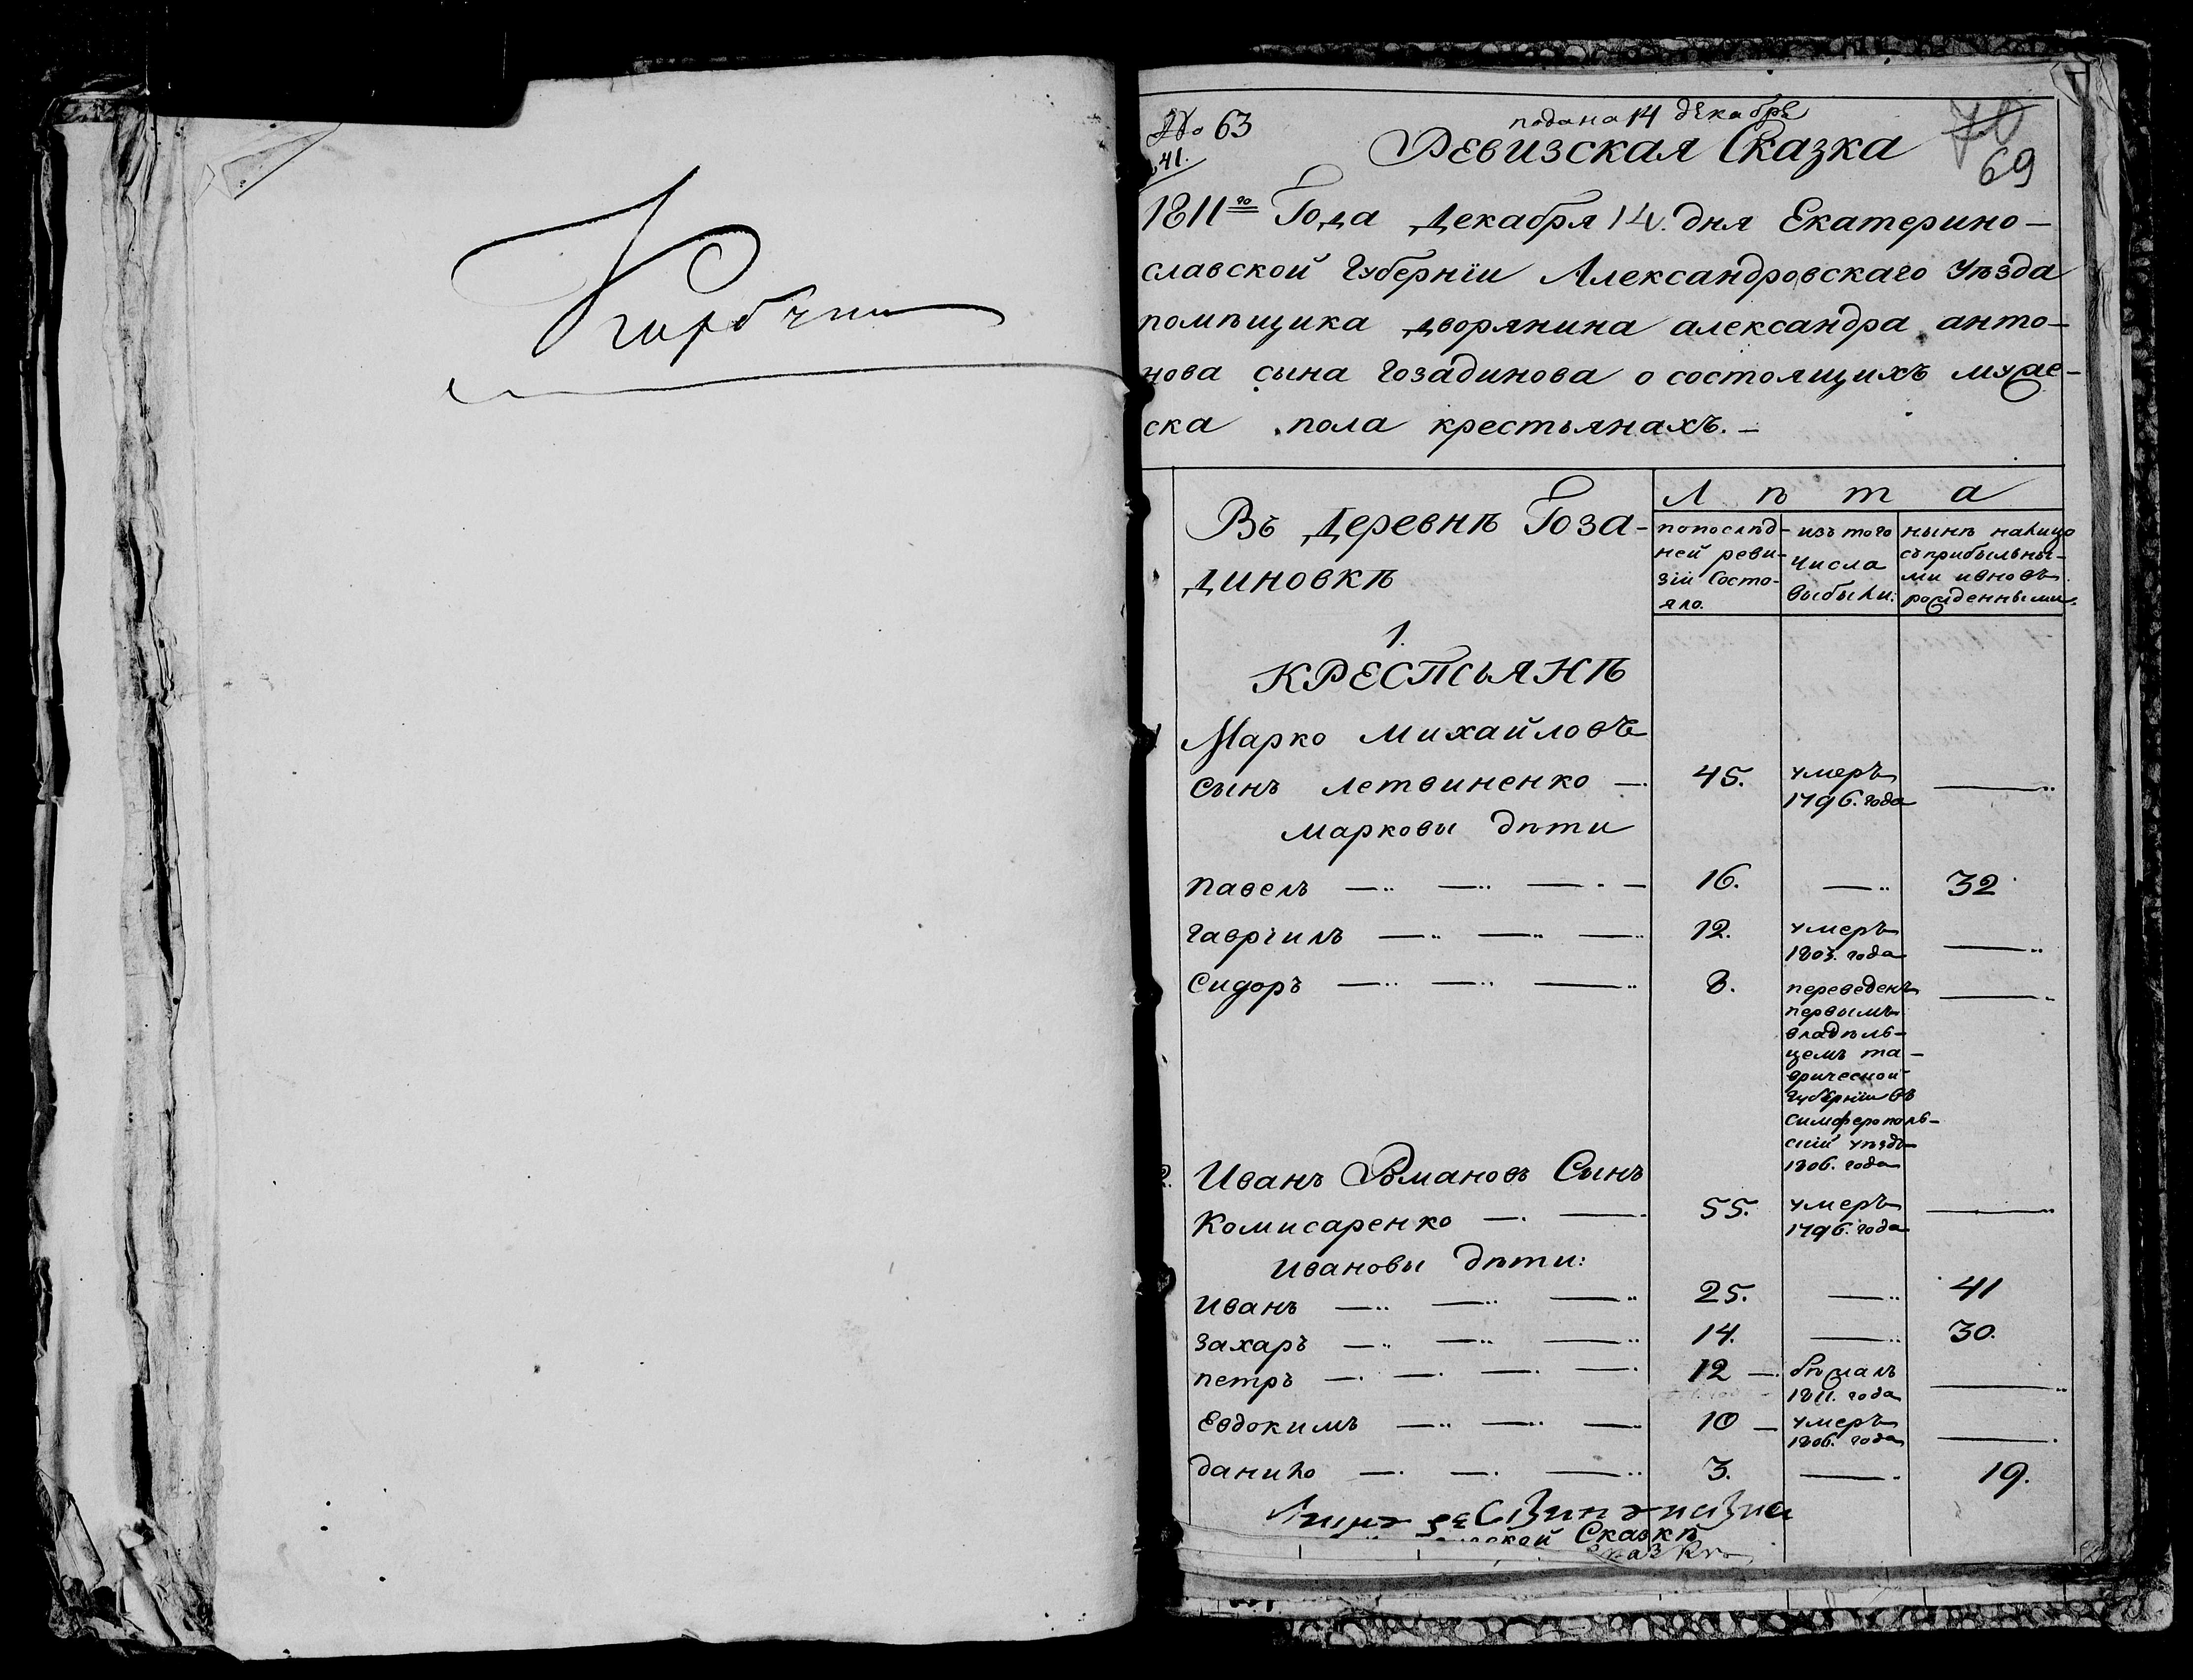 № 63
41.
подана 14 декабрѣ
Ревизская Сказка
70
69
1811го Года Декабря 14. дня Екатерино-
славской губернїи Александровскаго уѣзда
помѣщика дворянина александра анто-
нова сына гозадинова о состоящихъ муже-
ска пола крестьянахъ.
Въ Деревнѣ Гоза-
диновкѣ
Лѣта
попослѣд-
ней реви-
зїи Состо-
яло.
изъ того
числа
выбыли:
нынѣ налицо
съприбыльны-
ми ивновь
рожденными.
1.
КРЕСТЬЯНѢ
1 Марко Михайловъ
сынъ летвиненко — 45. умеръ
1796. года —
марковы дѣти
павелъ — 16. — 32
гаврїилъ — 12. умеръ
1803. года —
Сидоръ — 8. переведенъ —
первымъ
владѣль-
цемъ та-
врической
губернїи въ
симферополь-
скїй уѣздъ
1806. года
2. Иванъ Романовъ Сынъ
Комисаренко — 55. умеръ
1796. года —
Ивановы дѣти:
Иванъ — 25. — 41
Захаръ — 14. — 30.
петръ — 12 — бѣжалъ
1811. года —
Евдокимъ — 10 — умеръ
1806. года —
данило — 3. — 19.
Сказкѣ